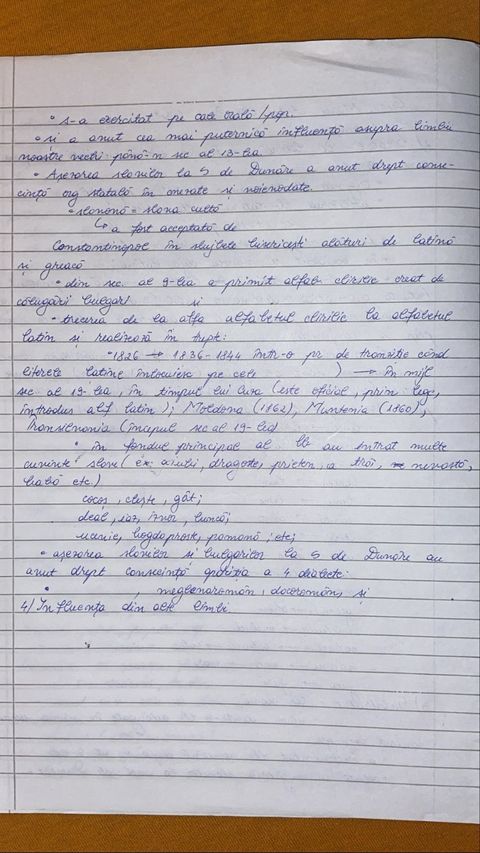 • s-a exercitat pe cale orală/pop.
• și a avut cea mai puternică influență asupra limbii
noastre vechi până-n sec al 13-lea
• Așezarea slavilor la S de Dunăre a avut drept conse-
cință org statală în cnezate și voievodate.
• slavonă = slava cultă
↳ a fost acceptată de
Constantinopol în slujbele bisericești alături de latină
și greacă
• din sec. al 9-lea a primit alfab. chirilic creat de
călugării bulgari și
• trecerea de la alfa alfabetul chirilic la alfabetul
latin se realizează în trepte:
• 1826 → 1836-1844 într-o pr de tranziție când
literele latine înlocuiesc pe cele ) → în mijl
sec al 19-lea, în timpul lui Cuza (este oficial, prin lege,
introdus alf latin); Moldova (1862), Muntenia (1860),
Transilvania (începul sec al 19-lea)
• în fondul principal al lb au intrat multe
cuvinte slave (ex: iubi, dragoste, prieten, a trăi, nevastă,
babă etc.)
cocoș, clește, gât;
deal, iaz, izvor, luncă;
ucenic, bogdaproste, pomană, etc;
• așezarea slavilor și bulgarilor la S de Dunăre au
avut drept consecință apariția a 4 dialecte:
• , meglenoromân, dacoromân, și
4) Influența din alte limbi.